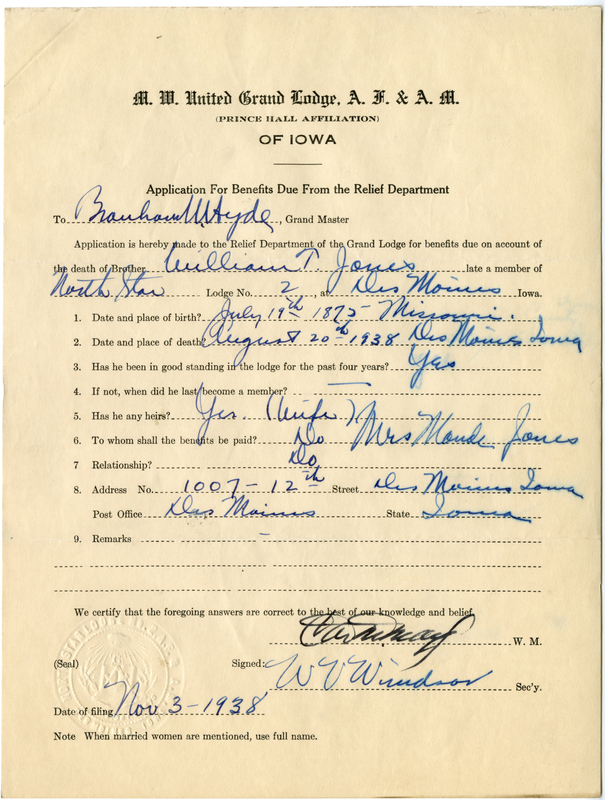 M. W. United Grand Lodge, A. F. & A. M.
(PRINCE HALL AFFILIATION)
OF IOWA
Application For Benefits Due From the Relief Department
To Branham W Hyde, Grand Master
Application is hereby made to the Relief Department of the Grand Lodge for benefits due on account of
the death of Brother William T. Jones late a member of
North Star Lodge No. 2, at Des Moines Iowa.
1. Date and place of birth? July 19th 1875 - Missouri.
2. Date and place of death? August 20th 1938 Des Moines Iowa
3. Has he been in good standing in the lodge for the past four years? Yes
4. If not, when did he last become a member? —
5. Has he any heirs? Yes. (Wife)
6. To whom shall the benefits be paid? Do Mrs Maude Jones
7 Relationship? Do
8. Address No. 1007 - 12th Street Des Moines Iowa
Post Office Des Moines State Iowa
9. Remarks -
We certify that the foregoing answers are correct to the best of our knowledge and belief.
W. M.
(Seal) Signed: W V Windsor Sec'y.
Date of filing Nov 3 - 1938
Note When married women are mentioned, use full name.